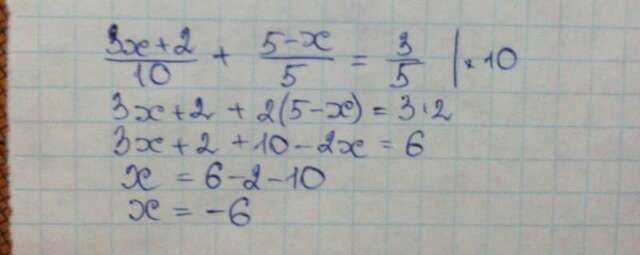 (3x+2)/10 + (5-x)/5 = 3/5 | × 10
3x+2 + 2(5-x) = 3·2
3x+2+10-2x = 6
x = 6-2-10
x = -6